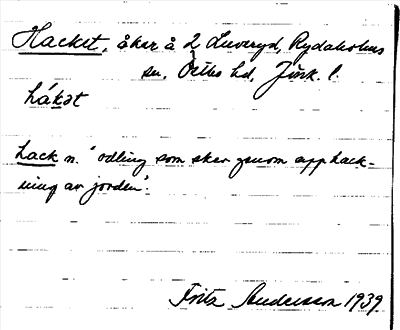 Hacket, åker å 2 Luveryd, Rydaholms
sn, Östbo hd, Jönk. l.
hákət
hack n. "odling som sker genom upphack-
ning av jorden".
Fritz Andersson 1939